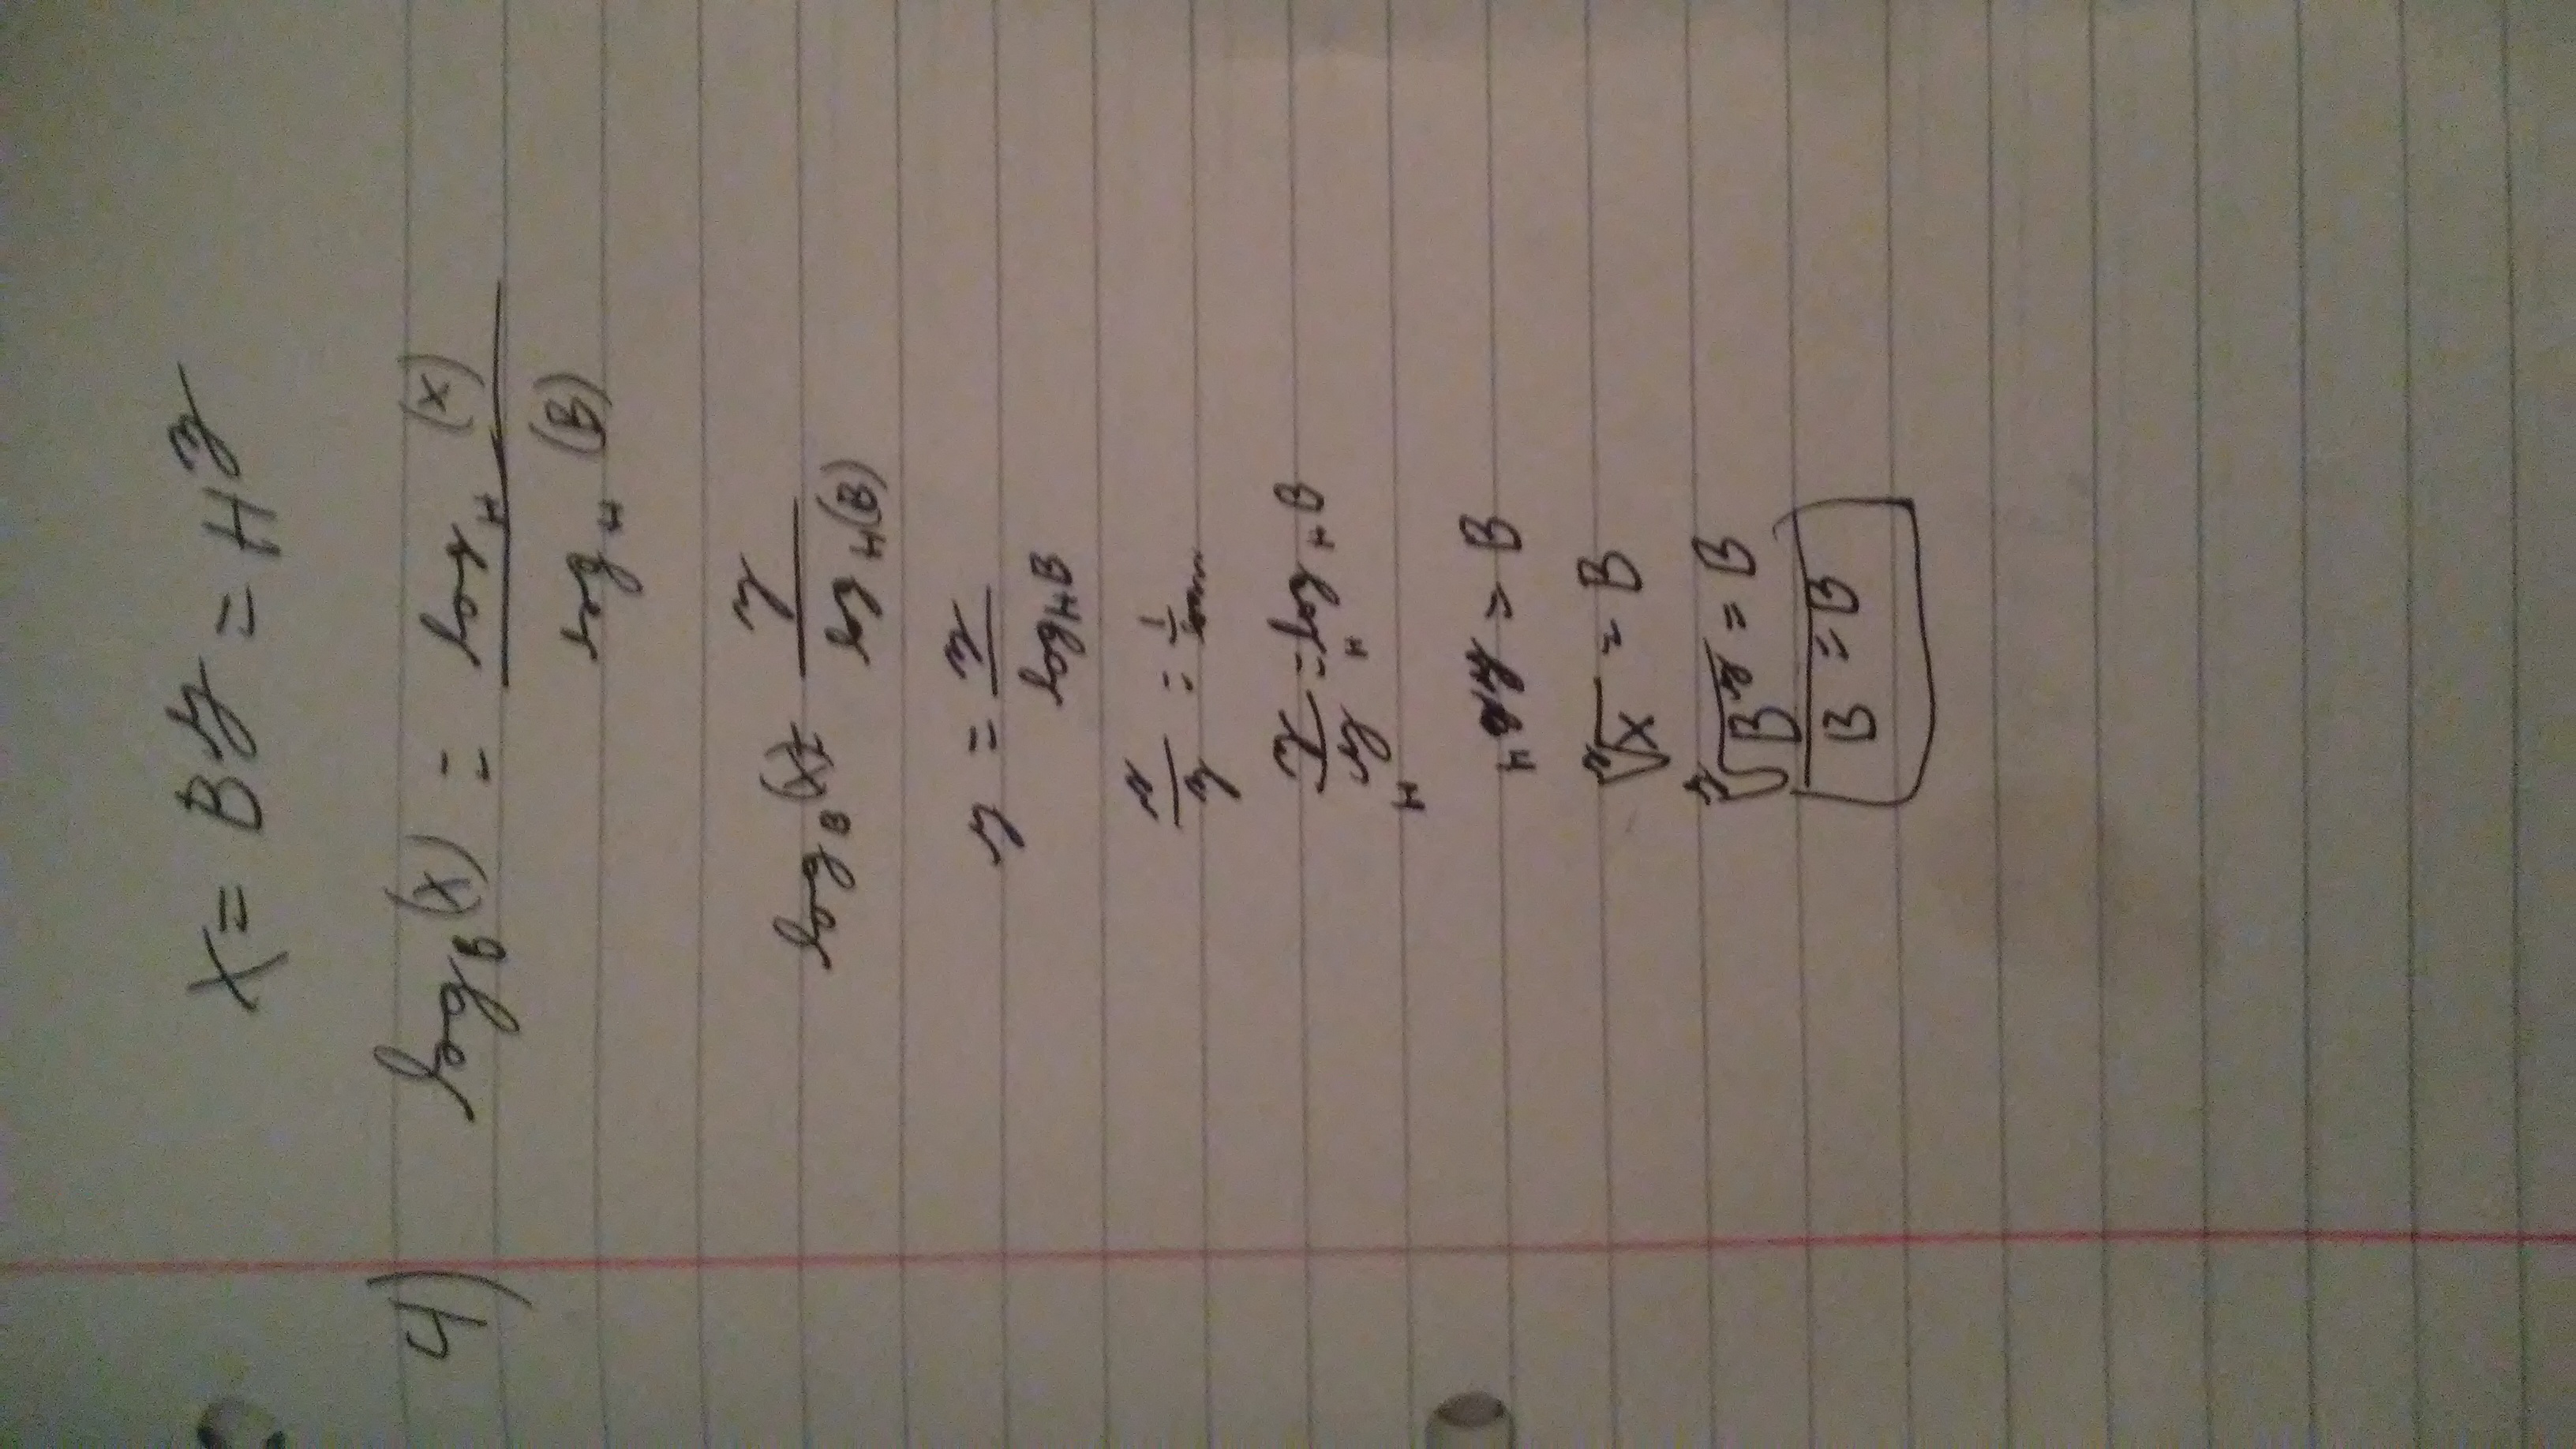 X = B^y = H^z
4) log_B(x) = log_H (x) / log_H (B)
log_B(x) = z / log_H(B)
y = z / log_H B
y / z = 1 /
H^(z/y) = H^(log_H B)
H^(z/y) = B
^y√x = B
^y√(B^y) = B
B = B